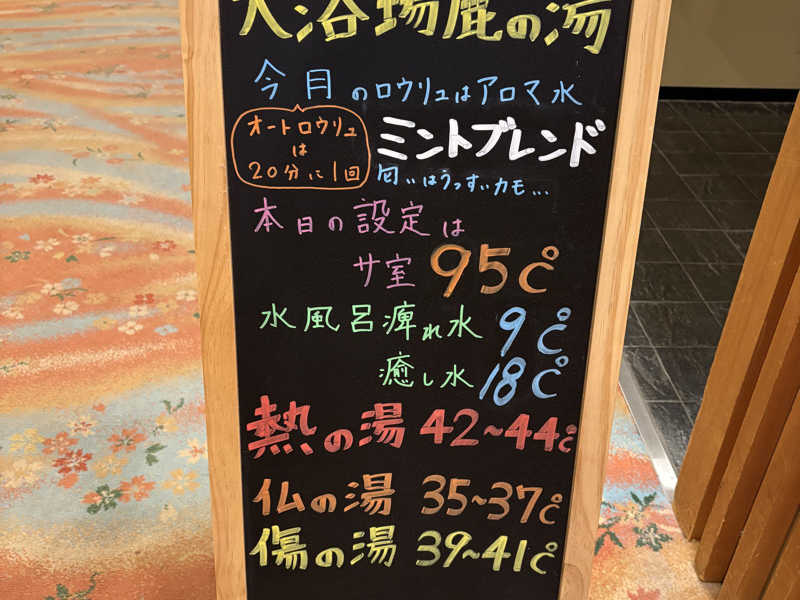 大浴場鹿の湯
今月のロウリュはアロマ水
オートロウリュ
は
20分に1回
ミントブレンド
匂いはうっすいカモ…
本日の設定は
サ室 95℃
水風呂痺れ水 9℃
癒し水 18℃
熱の湯 42~44℃
仏の湯 35~37℃
傷の湯 39~41℃